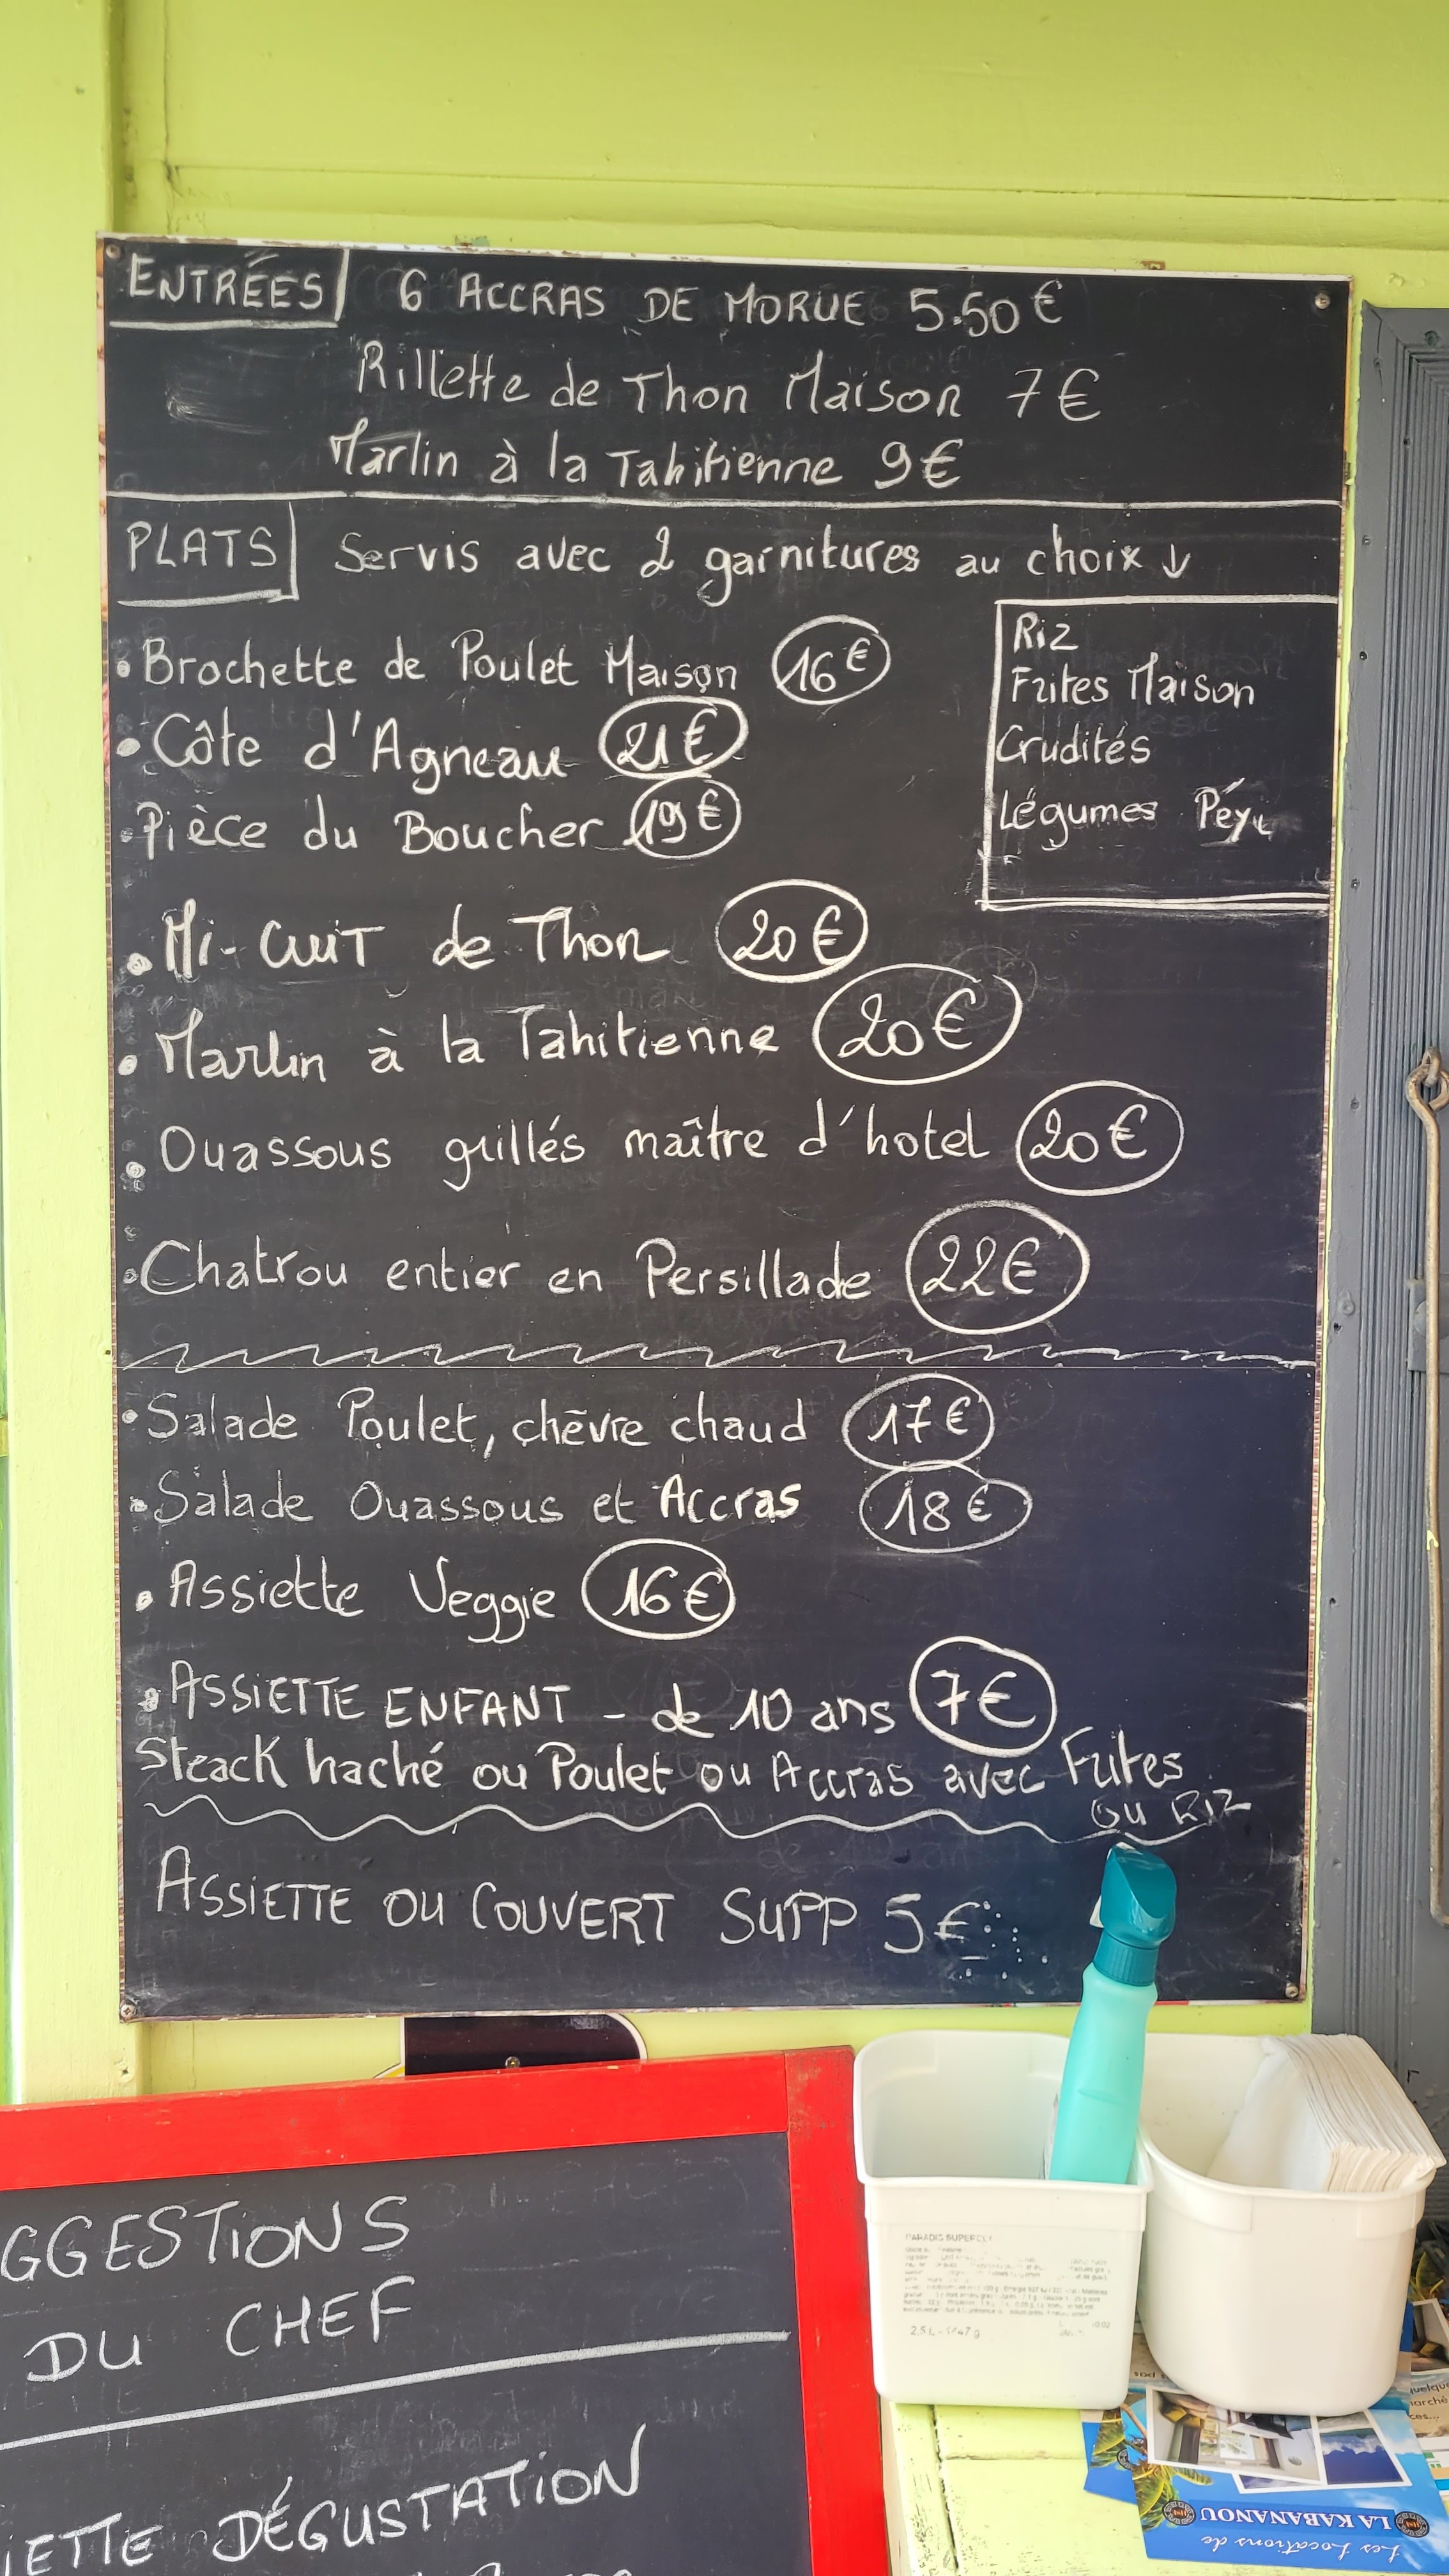 ENTRÉES 6 ACCRAS DE MORUE 5.50€
Rillette de Thon Maison 7€
Marlin à la Tahitienne 9€
PLATS Servis avec 2 garnitures au choix ↓
Riz
Frites Maison
Crudités
Légumes Péyi
• Brochette de Poulet Maison 16€
• Côte d'Agneau 21€
• Pièce du Boucher 19€
• Mi-cuit de Thon 20€
• Marlin à la Tahitienne 20€
• Ouassous grillés maître d'hotel 20€
• Chatrou entier en Persillade 22€
• Salade Poulet, chèvre chaud 17€
• Salade Ouassous et Accras 18€
• Assiette Veggie 16€
• ASSIETTE ENFANT - de 10 ans 7€
Steack haché ou Poulet ou Accras avec Frites
ou RIZ
ASSIETTE OU COUVERT SUPP 5€
GGESTIONS
DU CHEF
IETTE DÉGUSTATION
Les Locations de
LA KABANANOU